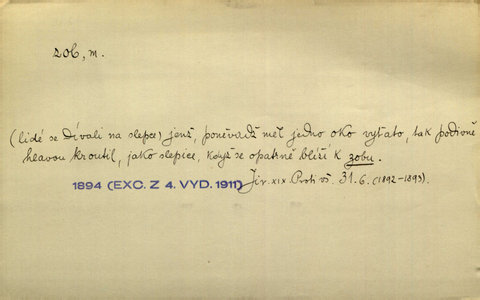 zob, m.
(lidé se dívali na slepce) jenž, poněvadž měl jedno oko vyťato, tak podivně
hlavou kroutil, jako slepice, když se opatrně blíží k zobu.
1894 (EXC. Z 4. VYD. 1911) Jir. XIX Proti vš. 31. 6. (1892-1893).